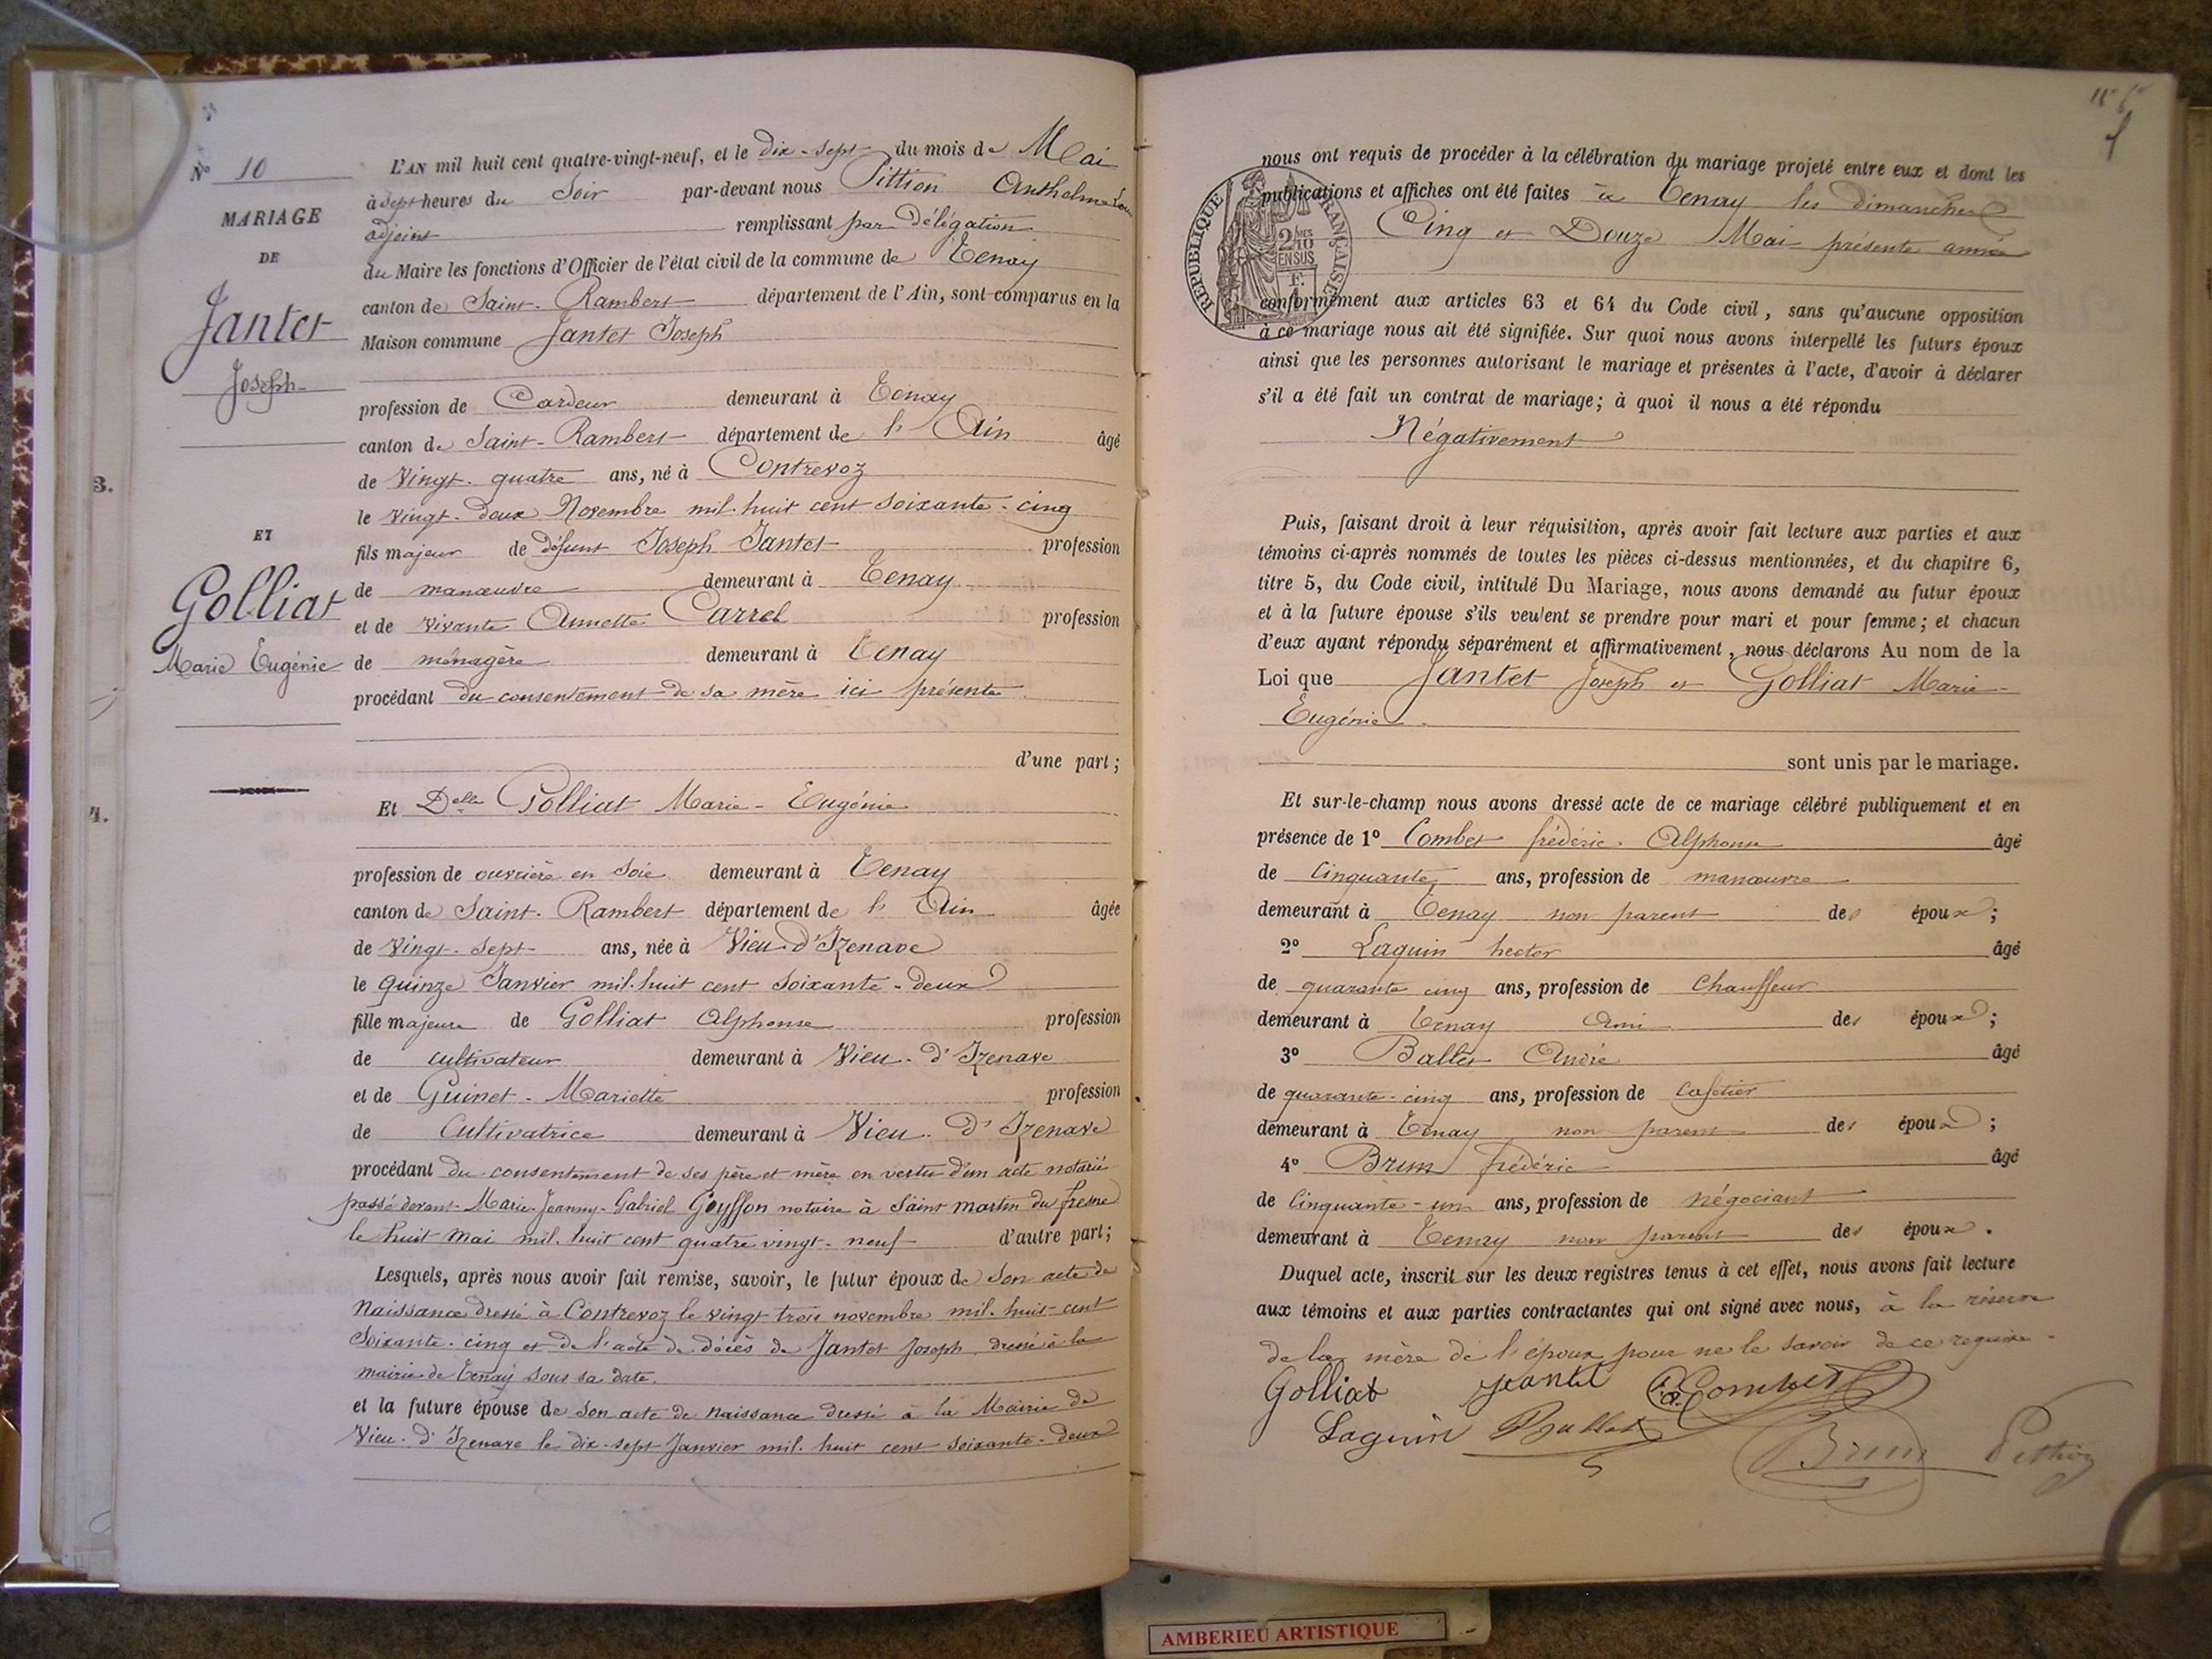 No 10
MARIAGE
DE
Jantet
Joseph
ET
Golliat
Marie Eugénie
3.
4.
L'AN mil huit cent quatre-vingt-neuf, et le dix-sept du mois de Mai
à sept heures du Soir par-devant nous Pittion Anthelme
adjoint remplissant par Délégation
du Maire les fonctions d'Officier de l'état civil de la commune de Tenay
canton de Saint-Rambert département de l'Ain, sont comparus en la
Maison commune Jantet Joseph
profession de Cardeur demeurant à Tenay
canton de Saint-Rambert département de l'Ain âgé
de vingt-quatre ans, né à Contrevoz
le vingt-deux Novembre mil-huit cent soixante-cinq
fils majeur de défunt Joseph Jantet profession
de manœuvre demeurant à Tenay
et de vivante Annette Carrel profession
de ménagère demeurant à Tenay
procédant du consentement de sa mère ici présente
d'une part ;
Et Delle Golliat Marie-Eugénie
profession de ouvrière en soie demeurant à Tenay
canton de Saint-Rambert département de l'Ain âgée
de vingt-sept ans, née à Vieu-d'Izenave
le quinze Janvier mil-huit cent soixante-deux
fille majeure de Golliat Alphonse profession
de cultivateur demeurant à Vieu-d'Izenave
et de Guinet-Mariette profession
de Cultivatrice demeurant à Vieu-d'Izenave
procédant du consentement de ses père et mère en vertu d'un acte notarié
passé devant Marie-Jeanny-Gabriel Goyffon notaire à Saint martin du fresne
le huit mai mil-huit cent quatre vingt-neuf d'autre part ;
Lesquels, après nous avoir fait remise, savoir, le futur époux de son acte de
Naissance dressé à Contrevoz le vingt trois novembre mil-huit-cent
Soixante-cinq et de l'acte de décès de Jantet Joseph dressé à la
mairie de Tenay sous sa date.
et la future épouse de son acte de naissance dressé à la Mairie de
Vieu-d'Izenave le dix-sept Janvier mil-huit cent soixante-deux
nous ont requis de procéder à la célébration du mariage projeté entre eux et dont les
publications et affiches ont été faites à Tenay les dimanches
Cinq et Douze Mai présente année
REPUBLIQUE FRANÇAISE
2/10
EN SUS
conformément aux articles 63 et 64 du Code civil, sans qu'aucune opposition
à ce mariage nous ait été signifiée. Sur quoi nous avons interpellé les futurs époux
ainsi que les personnes autorisant le mariage et présentes à l'acte, d'avoir à déclarer
s'il a été fait un contrat de mariage ; à quoi il nous a été répondu
Négativement
Puis, faisant droit à leur réquisition, après avoir fait lecture aux parties et aux
témoins ci-après nommés de toutes les pièces ci-dessus mentionnées, et du chapitre 6,
titre 5, du Code civil, intitulé Du Mariage, nous avons demandé au futur époux
et à la future épouse s'ils veulent se prendre pour mari et pour femme ; et chacun
d'eux ayant répondu séparément et affirmativement, nous déclarons Au nom de la
Loi que Jantet Joseph et Golliat Marie-
Eugénie
sont unis par le mariage.
Et sur-le-champ nous avons dressé acte de ce mariage célébré publiquement et en
présence de 1o Combet frédéric Alphonse âgé
de Cinquante ans, profession de manœuvre
demeurant à Tenay non parent des époux ;
2o Laguin hector âgé
de quarante cinq ans, profession de Chauffeur
demeurant à Tenay Ami des époux ;
3o Ballet André âgé
de quarante-cinq ans, profession de cafetier
demeurant à Tenay non parent des époux ;
4o Brun frédéric âgé
de Cinquante-un ans, profession de négociant
demeurant à Tenay non parent des époux.
Duquel acte, inscrit sur les deux registres tenus à cet effet, nous avons fait lecture
aux témoins et aux parties contractantes qui ont signé avec nous, à la réserve
de la mère de l'époux pour ne le savoir de ce requise.
Golliat Jantet Combet
Laguin Ballet Brun Pittion
AMBERIEU ARTISTIQUE